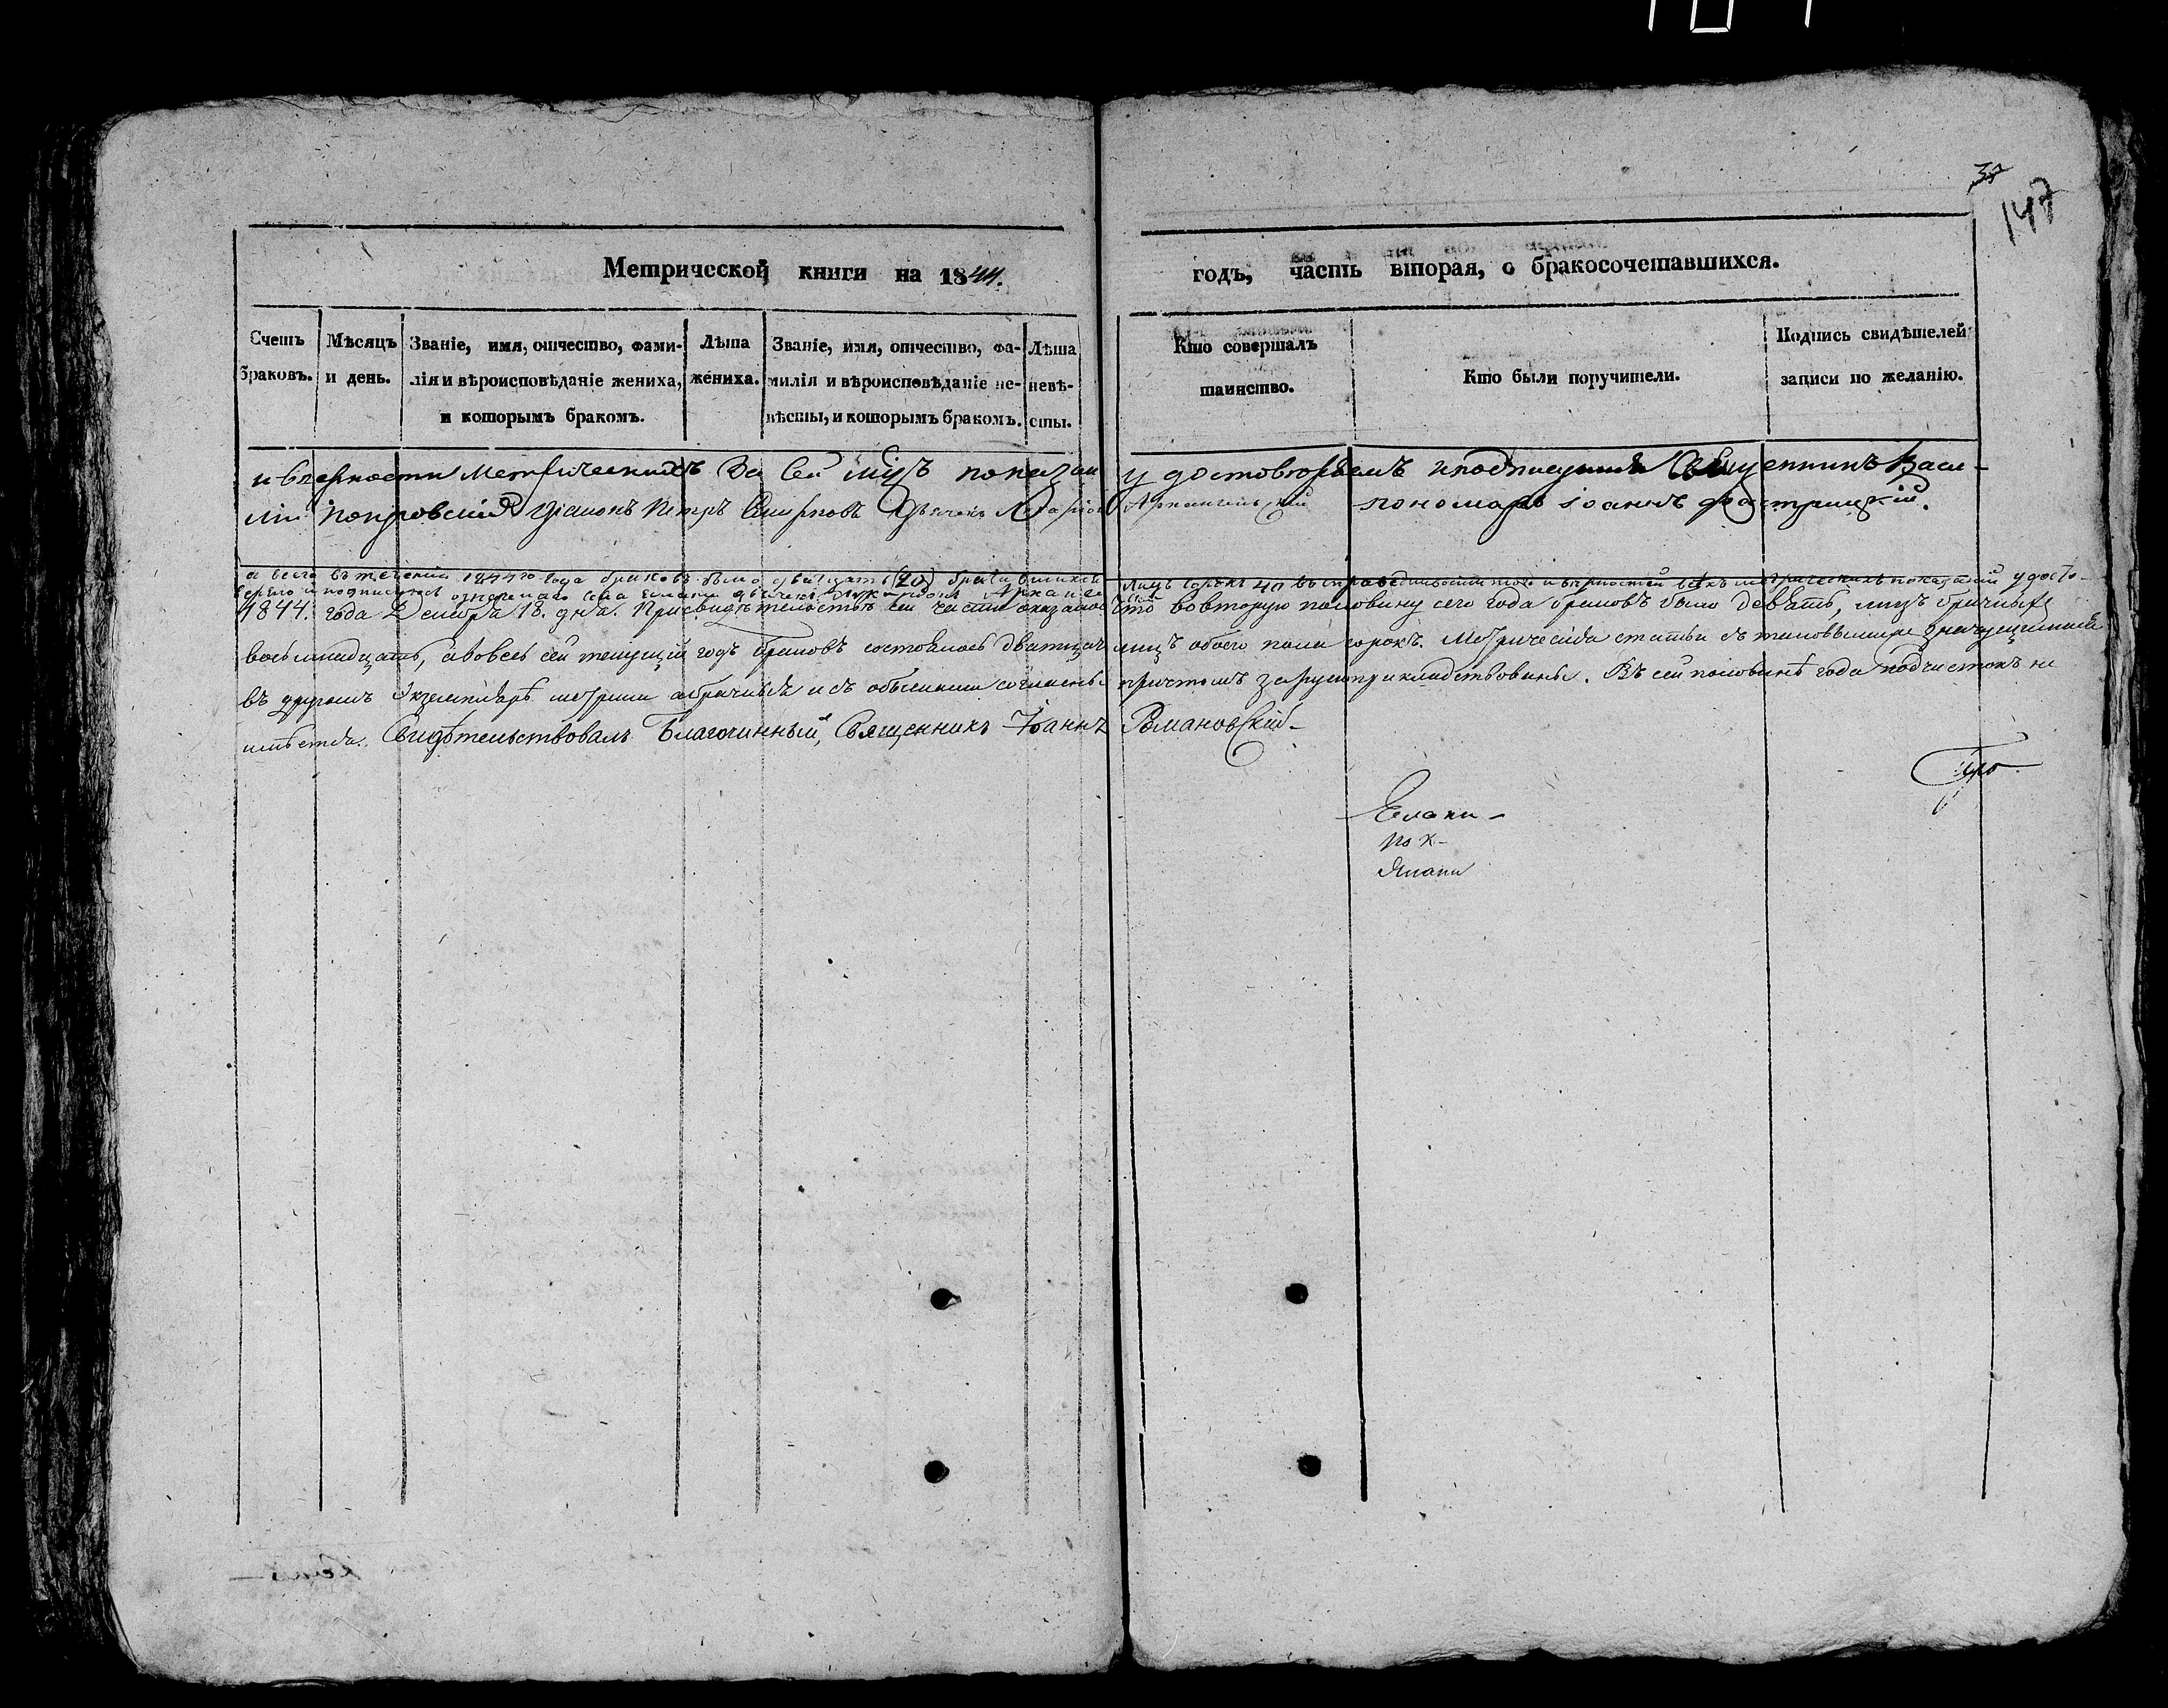 37
147
Метрической книги на 1844.
годъ, часть вторая, о бракосочетавшихся.
Счетъ браковъ.
Мѣсяцъ и день.
Званіе, имя, отчество, фамилія и вѣроисповѣданіе жениха, и которымъ бракомъ.
Лѣта жениха.
Званіе, имя, отчество, фамилія и вѣроисповѣданіе невѣсты, и которымъ бракомъ.
Лѣта невѣсты.
Кто совершалъ таинство.
Кто были поручители.
Подпись свидѣтелей записи по желанію.
и вѣрности метрическихъ удостовѣряемъ и подписуемся Священникъ Васи-
лій Покровскій Діаконъ Петръ Смирновъ Дьячекъ Архангельскій пономарь Іоаннъ
а всего въ теченіи 1844го года браковъ было двадцать (20) лицъ сорокъ 40 въ справедливости того и вѣрностей всѣхъ метрическихъ показаній удосто-
вѣряю и подписуюсь села Елани дьячекъ
1844. года Декабря 18. дня. При свидѣтельствѣ сей части оказалось что во вторую половину сего года браковъ было девять, лицъ брачныхъ
восьмнадцать, а во весь сей текущій годъ браковъ состоялось двадцать лицъ обоего пола сорокъ. Метрическія статьи съ таковыми же значущимися
въ другомъ экземплярѣ метрики и съ обысками согласны. Въ сей половинѣ года подчистокъ не
имѣется. Свидѣтельствовалъ Благочинный, Священникъ Іоаннъ Романовскій
Елани